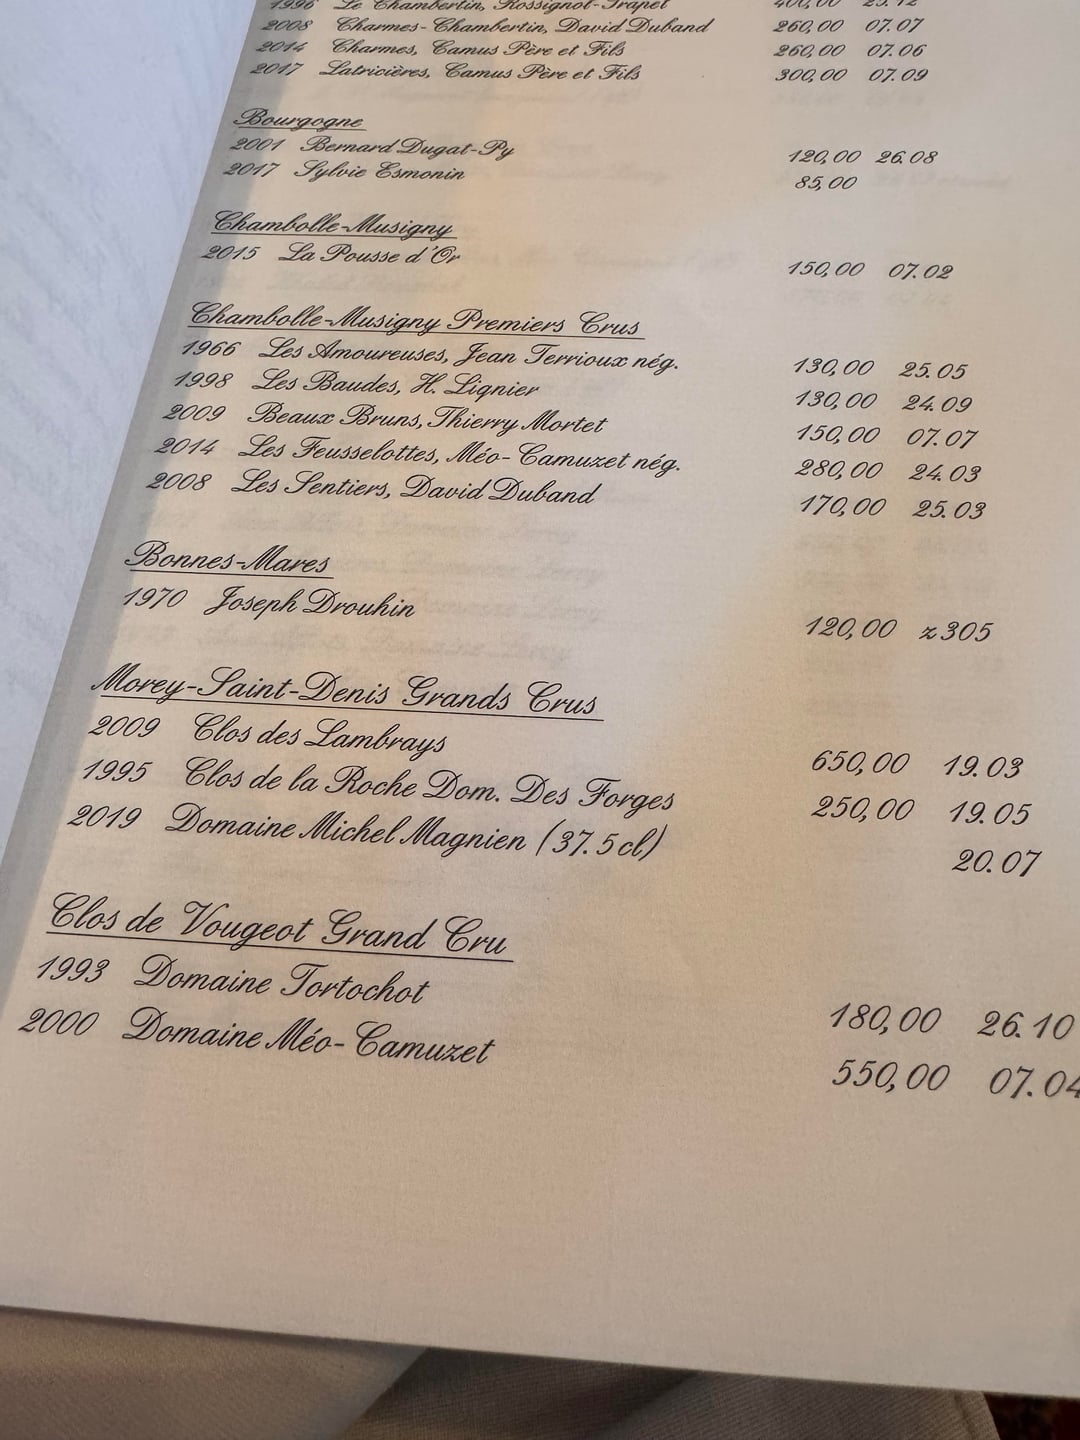 1996 Le Chambertin, Rossignol-Trapet 400,00 25.12
2008 Charmes-Chambertin, David Duband 260,00 07.07
2014 Charmes, Camus Père et Fils 260,00 07.06
2017 Latricières, Camus Père et Fils 300,00 07.09
Bourgogne
2001 Bernard Dugat-Py 120,00 26.08
2017 Sylvie Esmonin 85,00
Chambolle-Musigny
2015 La Pousse d'Or 150,00 07.02
Chambolle-Musigny Premiers Crus
1966 Les Amoureuses, Jean Terrioux nég. 130,00 25.05
1998 Les Baudes, H. Lignier 130,00 24.09
2009 Beaux Bruns, Thierry Mortet 150,00 07.07
2014 Les Feusselottes, Méo-Camuzet nég. 280,00 24.03
2008 Les Sentiers, David Duband 170,00 25.03
Bonnes-Mares
1970 Joseph Drouhin 120,00 z305
Morey-Saint-Denis Grands Crus
2009 Clos des Lambrays 650,00 19.03
1995 Clos de la Roche Dom. Des Forges 250,00 19.05
2019 Domaine Michel Magnien (37.5cl) 20.07
Clos de Vougeot Grand Cru
1993 Domaine Tortochot 180,00 26.10
2000 Domaine Méo-Camuzet 550,00 07.04